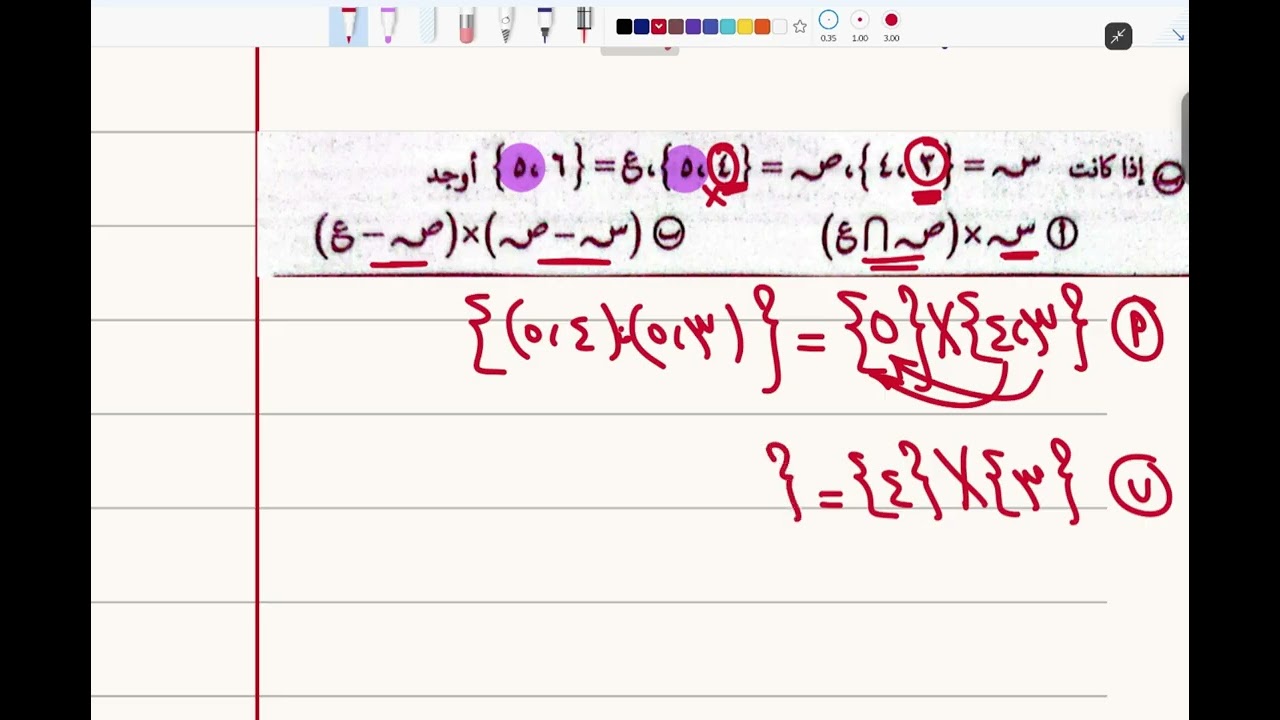 0.35 1.00 3.00
ب إذا كانت س = {٣، ٤}، ص = {٤، ٥}، ع = {٦، ٥} أوجد
أ س × (ص ∩ ع) ب (س − ص) × (ص − ع)
أ {٣، ٤} × {٥} = {(٣، ٥)، (٤، ٥)}
ب {٣} × {٤} = {